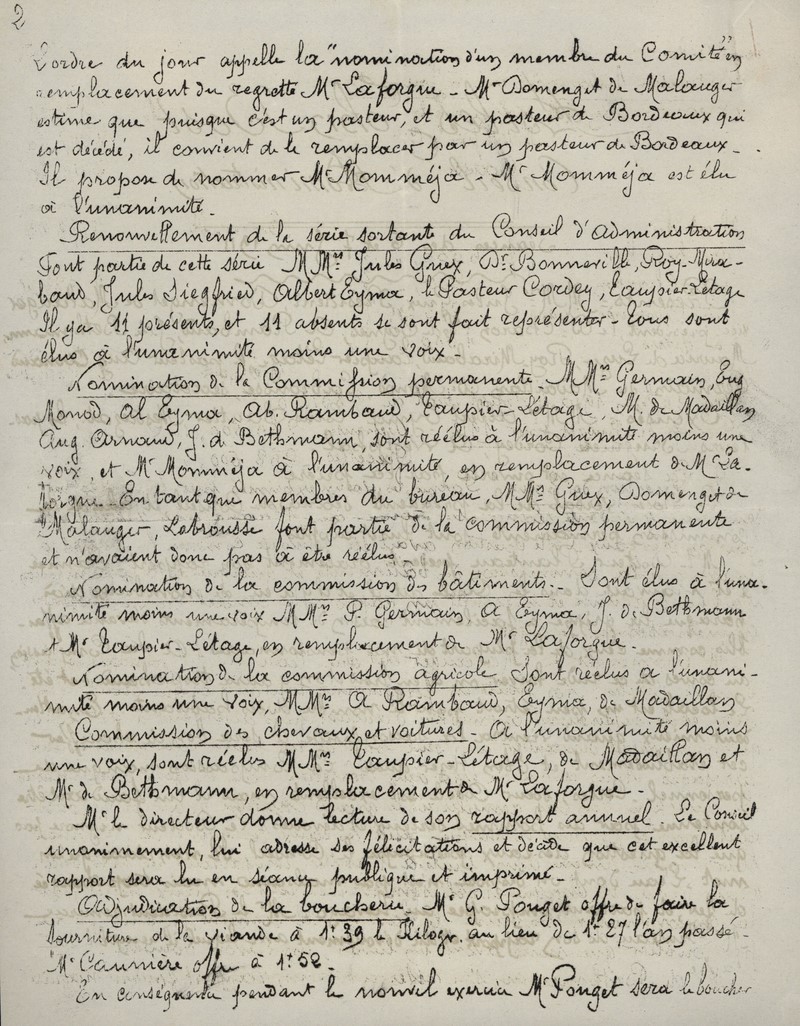 2
L'ordre du jour appelle la "nomination d'un membre du Comité" en
remplacement du regretté Mr Laforgue - Mr Domenget de Malauger
estime que puisque c'est un pasteur, et un pasteur de Bordeaux qui
est décédé, il convient de le remplacer par un pasteur de Bordeaux -
Il propose de nommer Mr Momméja - Mr Momméja est élu
à l'unanimité -
Renouvellement de la série sortante du Conseil d'administration
Font partie de cette série MMrs Jules Guex, Dr Bonneville, Roy, Mira-
baud, Jules Siegfried, Albert Eyma, le Pasteur Cordey, Taupier-Létage
Il y a 11 présents, et 11 absents se sont fait représenter - Tous sont
élus à l'unanimité moins une voix -
Nomination de la Commission permanente - MMrs Germain, Eug
Monod, Al Eyma, Ab. Rambaud, Taupier-Létage, M. de Madaillan
Aug. Arnaud, J. d Bethmann, sont réélus à l'unanimité moins une
voix, et Mr Momméja à l'unanimité, en remplacement de Mr La-
forgue - En tant que membres du bureau, MMrs Guex, Domenget de
Malauger, Lebrousse font partie de la commission permanente
et n'avaient donc pas à être réélus -
Nomination de la commission des bâtiments - Sont élus à l'una-
nimité moins une voix MMrs P. Germain, A Eyma, J. de Bethmann
et Mr Taupier-Létage, en remplacement de Mr Laforgue -
Nomination de la commission agricole Sont réélus a l'unani-
mité moins une voix, MMrs A Rambaud, Eyma, de Madaillan
Commission des chevaux et voitures - A l'unanimité moins
une voix, sont réélus MMrs Taupier-Létage, de Madaillan et
Mr de Bethmann, en remplacement de Mr Laforgue -
Mr le directeur donne lecture de son rapport annuel. Le Conseil
unanimement, lui adresse ses félicitations et décide que cet excellent
rapport sera lu en séance publique et imprimé -
Adjudication de la boucherie Mr G. Pouget offre de faire la
fourniture de la viande à 1f 39 le Kilogr. au lieu de 1f 27 l'an passé -
Mr offre à 1f 52 -
En conséquence pendant le nouvel exercice Mr Pouget sera le boucher